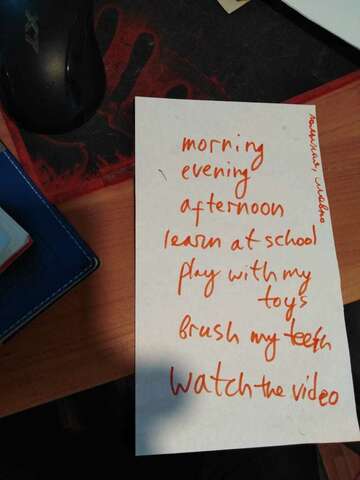 morning
evening
afternoon
learn at school
play with my
toys
brush my teeth
watch the video